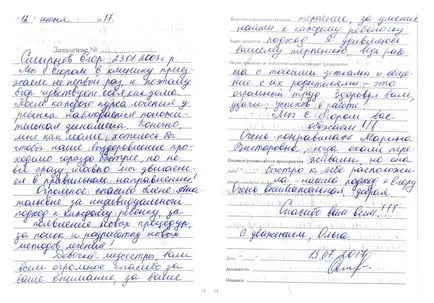 "12" июня 2017.
Заявление №
Смирнов Егор 23.01.2009 г.р
Мы с Егором в клинику приез-
жаем не первый раз и поэтому
Егор чувствует себя как дома
После каждого курса лечения у
ребенка наблюдается положи-
тельная динамика. Конечно,
мне как маме, хотелось бы
чтобы наше выздоровление про-
ходило гораздо быстрее, но не
все сразу, главно мы двигаем-
ся в правильном направлении!
Огромное спасибо Елене Ана-
тольевне за индивидуальный
подход к каждому ребенку, за
появление новых процедур,
за поиск и разработку новых
методов лечения!
Девочки-медсестры, вам
всем огромное спасибо за
ваше внимание, за ваше
терпение, за умение
найти к каждому ребеночку
подход. Я удивляюсь
вашему терпению, ведь рабо-
та с такими детками и обще-
ние с их родителями - это
огромный труд. Здоровья вам,
удачи, успехов в работе!
Мы с Егором вас
обожаем!!!
Очень понравилась Марина
Викторовна, когда ехали пере-
живали, но она
быстро к себе расположи-
ла - нашла подход к Егору
Очень внимательная, добрая.
Спасибо вам всем!!!!
С уважением, Ольга
Дата 13.07.2017
Должность
Подпись